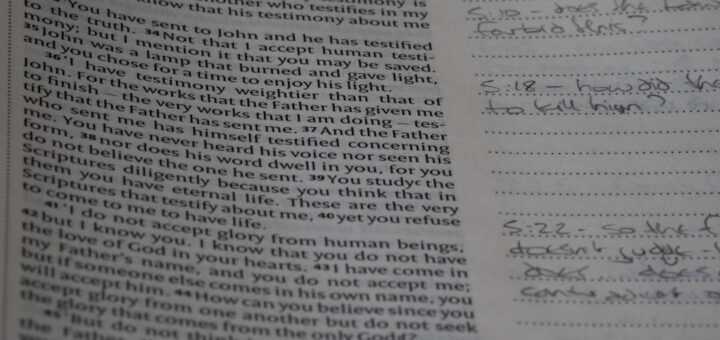 other who testifies in my
know that his testimony about me
33 You have sent to John and he has testified
to the truth. 34 Not that I accept human testi-
mony; but I mention it that you may be saved.
35 John was a lamp that burned and gave light,
and you chose for a time to enjoy his light.
36 'I have testimony weightier than that of
John. For the works that the Father has given me
to finish – the very works that I am doing – tes-
tify that the Father has sent me. 37 And the Father
who sent me has himself testified concerning
me. You have never heard his voice nor seen his
form, 38 nor does his word dwell in you, for you
do not believe the one he sent. 39 You study c the
Scriptures diligently because you think that in
them you have eternal life. These are the very
Scriptures that testify about me, 40 yet you refuse
to come to me to have life.
41 'I do not accept glory from human beings,
42 but I know you. I know that you do not have
the love of God in your hearts. 43 I have come in
my Father's name, and you do not accept me;
but if someone else comes in his own name, you
will accept him. 44 How can you believe since you
accept glory from one another but do not seek
the glory that comes from the only God d?
45 'But do not think
the Father
5:10 - does the
forbid this?
5:18 - how did the
to kill him?
5:22 - so the
doesn't judge -
does